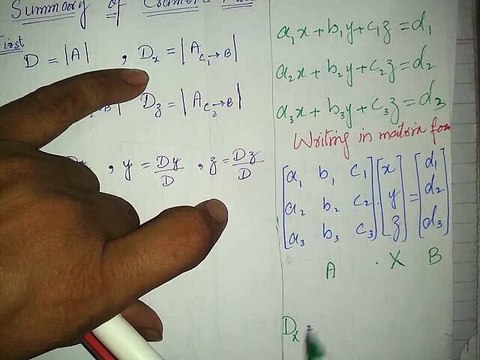 Summary of
First
D = |A| , Dx = |A C₁→B|
Dz = |A C₃→B|
, y = Dy/D , z = Dz/D
a₁x + b₁y + c₁z = d₁
a₂x + b₂y + c₂z = d₂
a₃x + b₃y + c₃z = d₃
Writing in matrix for
[a₁ b₁ c₁] [x] [d₁]
[a₂ b₂ c₂] . [y] = [d₂]
[a₃ b₃ c₃] [z] [d₃]
A . X B
Dx =